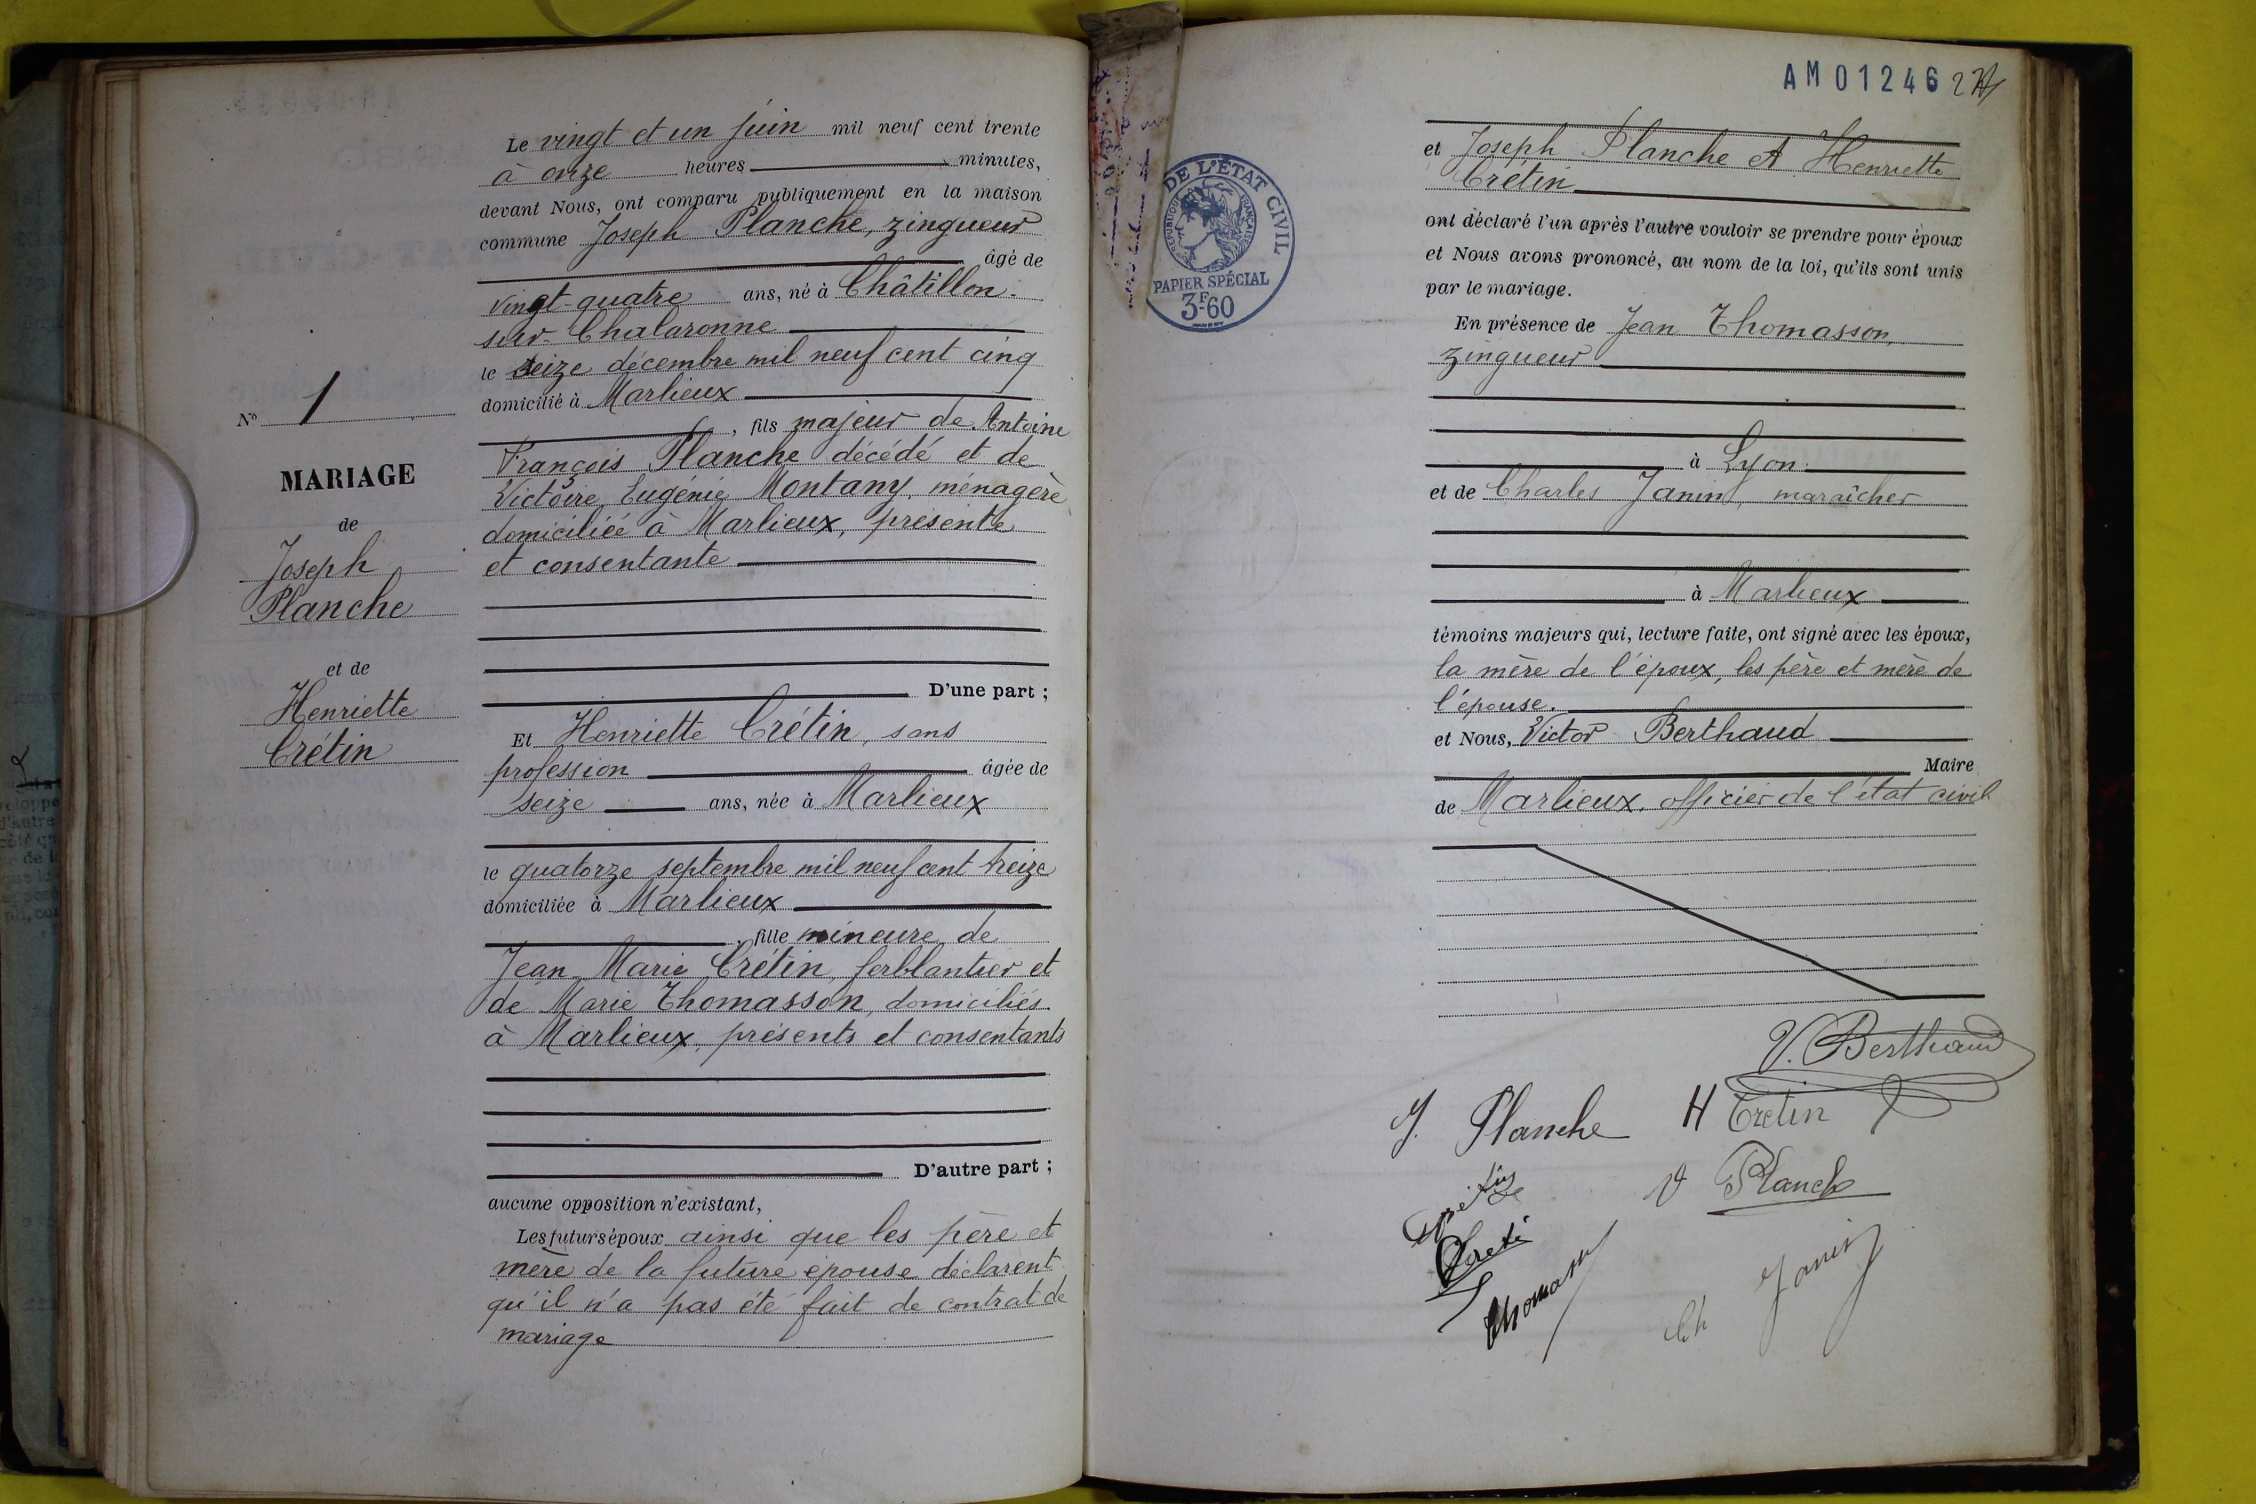 N° 1
MARIAGE
de
Joseph
Planche
et de
Henriette
Crétin
Le vingt et un juin mil neuf cent trente
à onze heures minutes,
devant Nous, ont comparu publiquement en la maison
commune Joseph Planche, zingueur
âgé de
vingt-quatre ans, né à Châtillon-
sur-Chalaronne
le seize décembre mil neuf cent cinq
domicilié à Marlieux
, fils majeur de Antoine
François Planche décédé et de
Victoire, Eugénie Montany, ménagère
domiciliée à Marlieux, présente
et consentante
D'une part ;
Et Henriette Crétin, sans
profession âgée de
seize ans, née à Marlieux
le quatorze septembre mil neuf cent treize
domiciliée à Marlieux
, fille mineure de
Jean Marie Crétin, ferblantier et
de Marie Thomasson, domiciliés
à Marlieux, présents et consentants
D'autre part ;
aucune opposition n'existant,
Les futurs époux ainsi que les père et
mère de la future épouse déclarent
qu'il n'a pas été fait de contrat de
mariage
AM01246
DE L'ÉTAT CIVIL
RÉPUBLIQUE FRANÇAISE
PAPIER SPÉCIAL
3F.60
et Joseph Planche et Henriette
Crétin
ont déclaré l'un après l'autre vouloir se prendre pour époux
et Nous avons prononcé, au nom de la loi, qu'ils sont unis
par le mariage.
En présence de Jean Thomasson,
zingueur
à Lyon.
et de Charles Janin, maraîcher
à Marlieux
témoins majeurs qui, lecture faite, ont signé avec les époux,
la mère de l'époux, les père et mère de
l'épouse.
et Nous, Victor Berthaud
Maire
de Marlieux, officier de l'état civil
V. Berthaud
J. Planche H Cretin
V Planche
Thomasson
Ch Janin